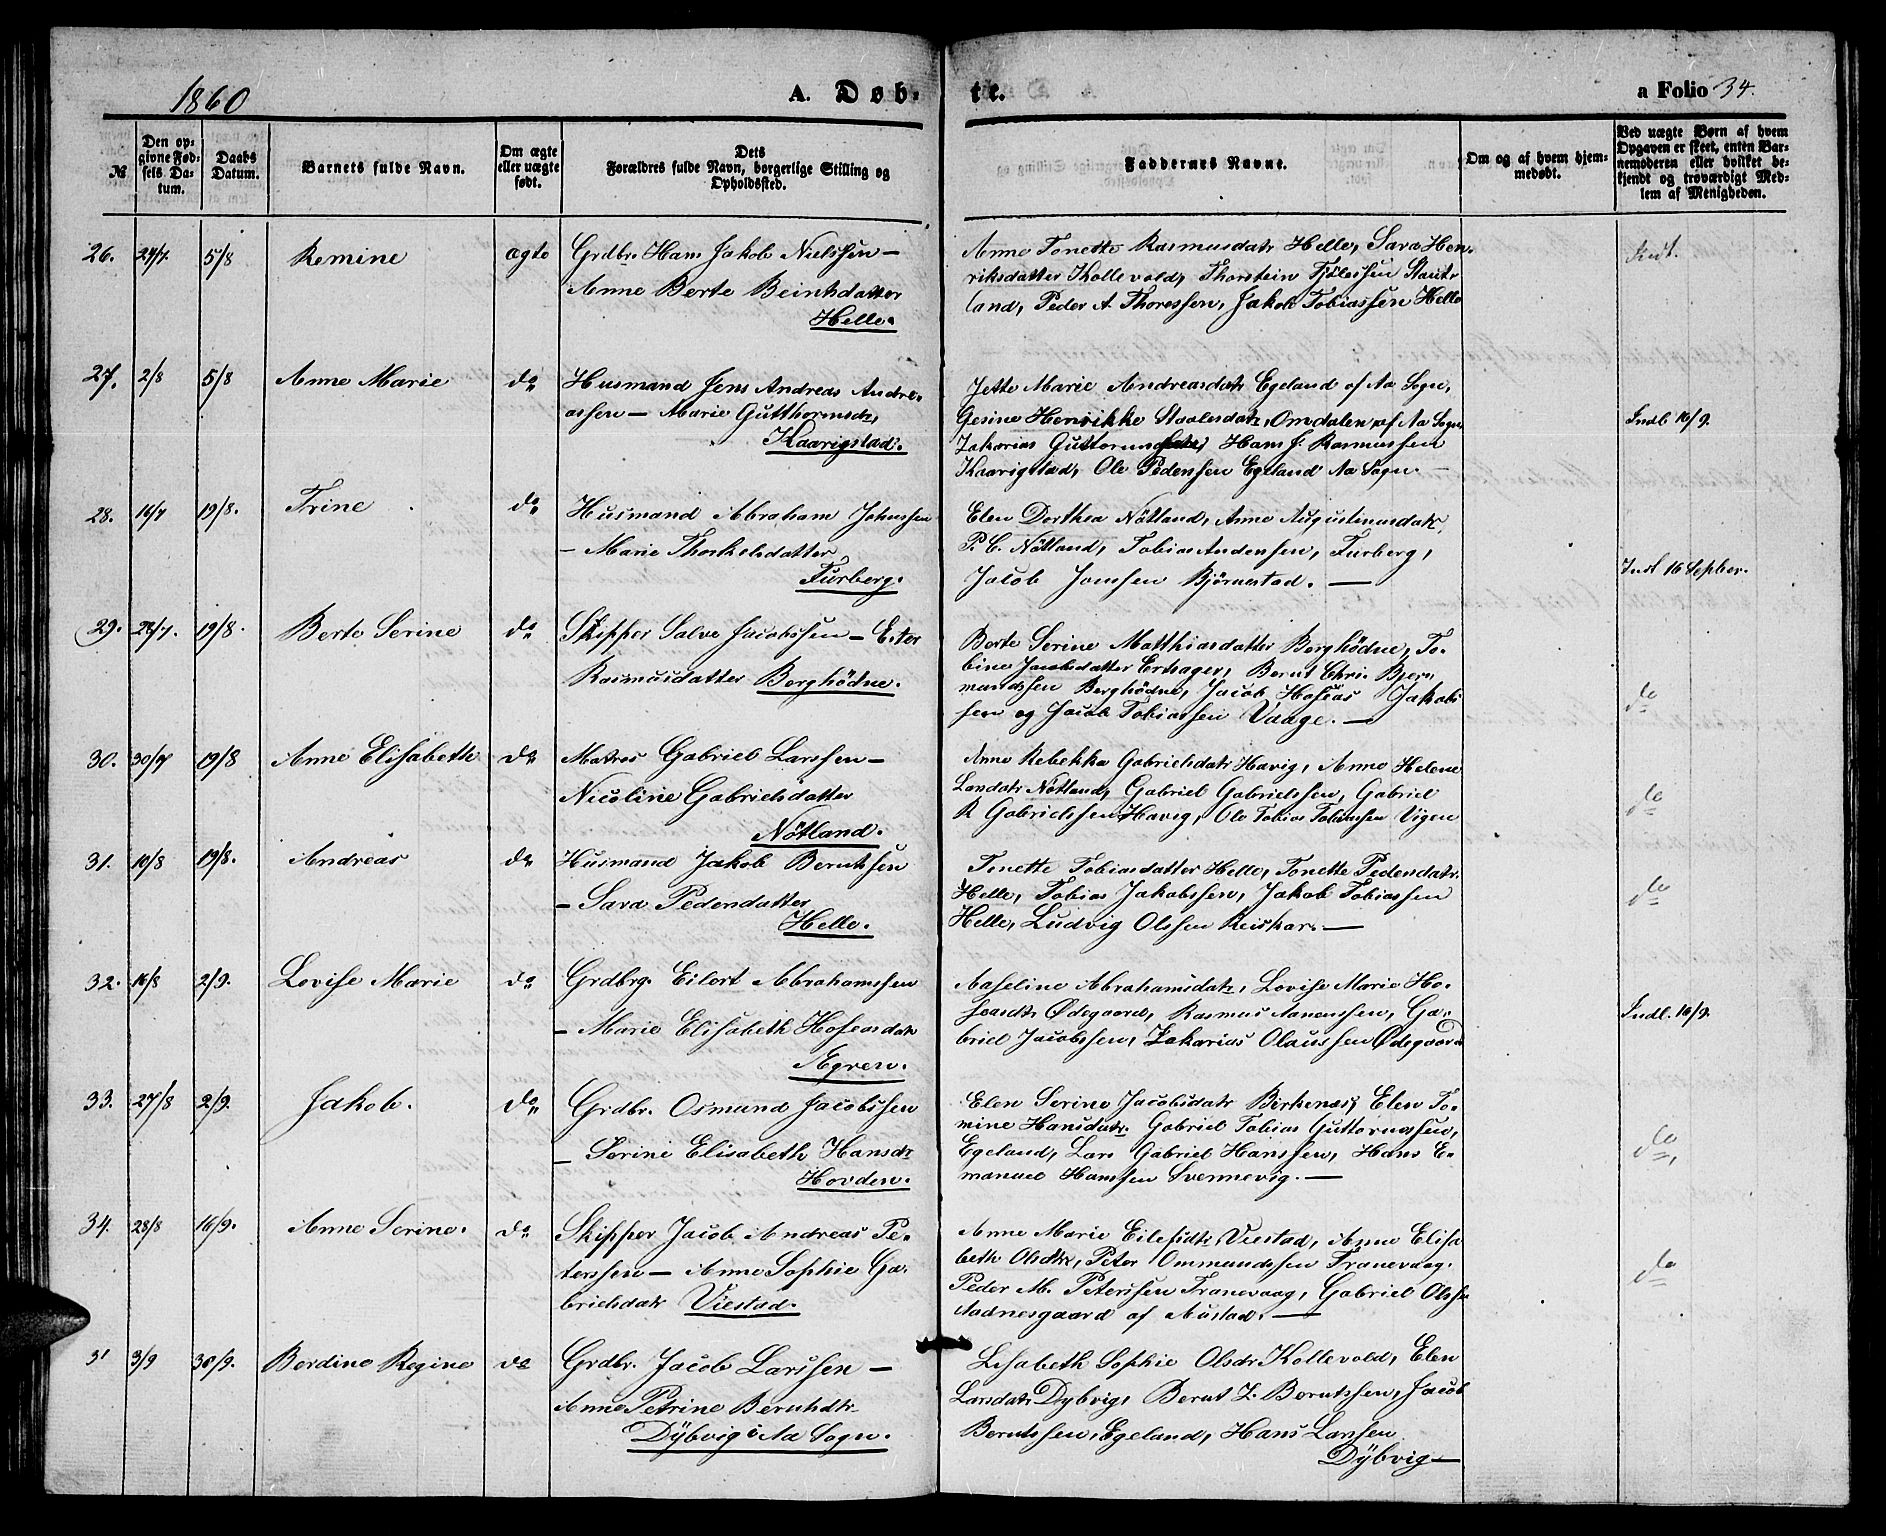 1860
A. Døb-
te.
a Folio 34.
№
Den op-
givne Fød-
sels. Da-
tum.
Daabs
Datum.
Barnets fulde Navn.
Om ægte
eller uægte
født.
Dets
Forældres fulde Navn, borgerlige Stilling og
Opholdssted.
Faddernes Navne.
Om og af hvem hjem-
medøbt.
Ved uægte Børn af hvem
Opgaven er skeet, enten Bar-
nemoderen eller hvilket be-
kjendt og troværdigt Med-
lem af Menigheden.
26. 24/7. 5/8 Remine ægte
Grdbr. Hans Jakob Nielssen —
Anne Berte Beintsdatter
Helle.
Anne Tonette Rasmusdatr Helle, Sara Hen-
riksdatter Kollevold, Thorstein
land, Peder A Thoressen, Jakob Tobiassen Helle
Indt.
27. 2/8 5/8 Anne Marie do
Husmand Jens Andreas Andre-
assen — Marie Gutthormsdr,
Kaarigstad.
Jette Marie Andreasdatr Egeland af Aa Sogn,
Gesine Henrikke Staalesdatr, Omdalen af Aa Sogn
Zakarias Hans J. Rasmussen
Kaarigstad, Ole Pedersen Egeland Aa Sogn. —
Indb 16/9.
28. 16/7 19/8. Trine do
Husmand Abraham Johnssen
— Marie Thorkelsdatter
Furberg.
Elen Dorthea Nötland, Anne Augustinusdatr,
P. C. Nötland, Tobias Andersen, Furberg,
Jacob Jonssen Bjørnestad. —
Indt 16 Septber.
29. 28/7. 19/8. Berte Serine do
Skipper Salve Jacobssen — Ester
Rasmusdatter Borghödne.
Berte Serine Matthiasdatter Borghödne, To-
bine Jacobsdatter Ertzager, Bernt Chri. Bjer-
mundssen Berghödne, Jacob Hoseas Jakobs
sen og Jacob Tobiassen Vaage. —
do
30. 30/7 19/8 Anne Elisabeth do
Matros Gabriel Larssen —
Nicoline Gabrielsdatter
Nötland.
Anne Rebekka Gabrielsdatr Havig, Anne Helene
Larsdatr Nötland, Gabriel Gabrielssen, Gabriel
R Gabrielssen Havig, Ole Tobias Tobiassen Vigen
do
31. 10/8 19/8. Andreas do
Husmand Jakob Berntssen
— Sara Pedersdatter
Helle.
Tonette Tobiasdatter Helle, Tonette Pedersdatr.
Helle, Tobias Jakobssen, Jakob Tobiassen
Helle, Ludvig Olssen Reiskar. —
do
32. 16/8 2/9. Lovise Marie do
Grdbrg. Eilert Abrahamssen
— Marie Elisabeth Hoseasdatr
Aaseline Abrahamsdatr, Lovise Marie Ho-
seasdtr Ødegaard, Rasmus Aanenssen, Ga-
briel Jacobssen, Zakarias Olaussen Ødegaard
Indl. 16/9.
33. 27/8 2/9. Jakob. do
Grdbr. Osmund Jacobssen
— Serine Elisabeth Hansdr
Hovden.
Elen Serine Jacobsdatr Birkenæs, Elen To-
mine Hansdatr. Gabriel Tobias Guttormssen,
Egeland, Lars Gabriel Hanssen, Hans E-
manuel Hanssen Svennevig. —
do,
34. 28/8 16/9. Anne Serine. do
Skipper Jacob Andreas Pe-
terssen — Anne Sophie Ga-
brielsdatr Viestad.
Anne Marie Eilefsdtr Viestad, Anne Elisa
beth Olsdtr, Peter Ommundssen Tranevaag.
Peder M. Peterssen Tranevaag, Gabriel Olsse
Aadnesgaard af Austad. —
do
3 3/9 30/9. Berdine Regine do
Grdbr. Jacob Larssen —
Anne Petrine Berntsdtr
Dÿbvig i Aa Sogn.
Lisabeth Sophie Olsdr Kollevold, Elen
Larsdatr Dybvig, Bernt Z. Berntssen, Jacob
Berntssen, Egeland, Hans Larssen
Dÿbvig —